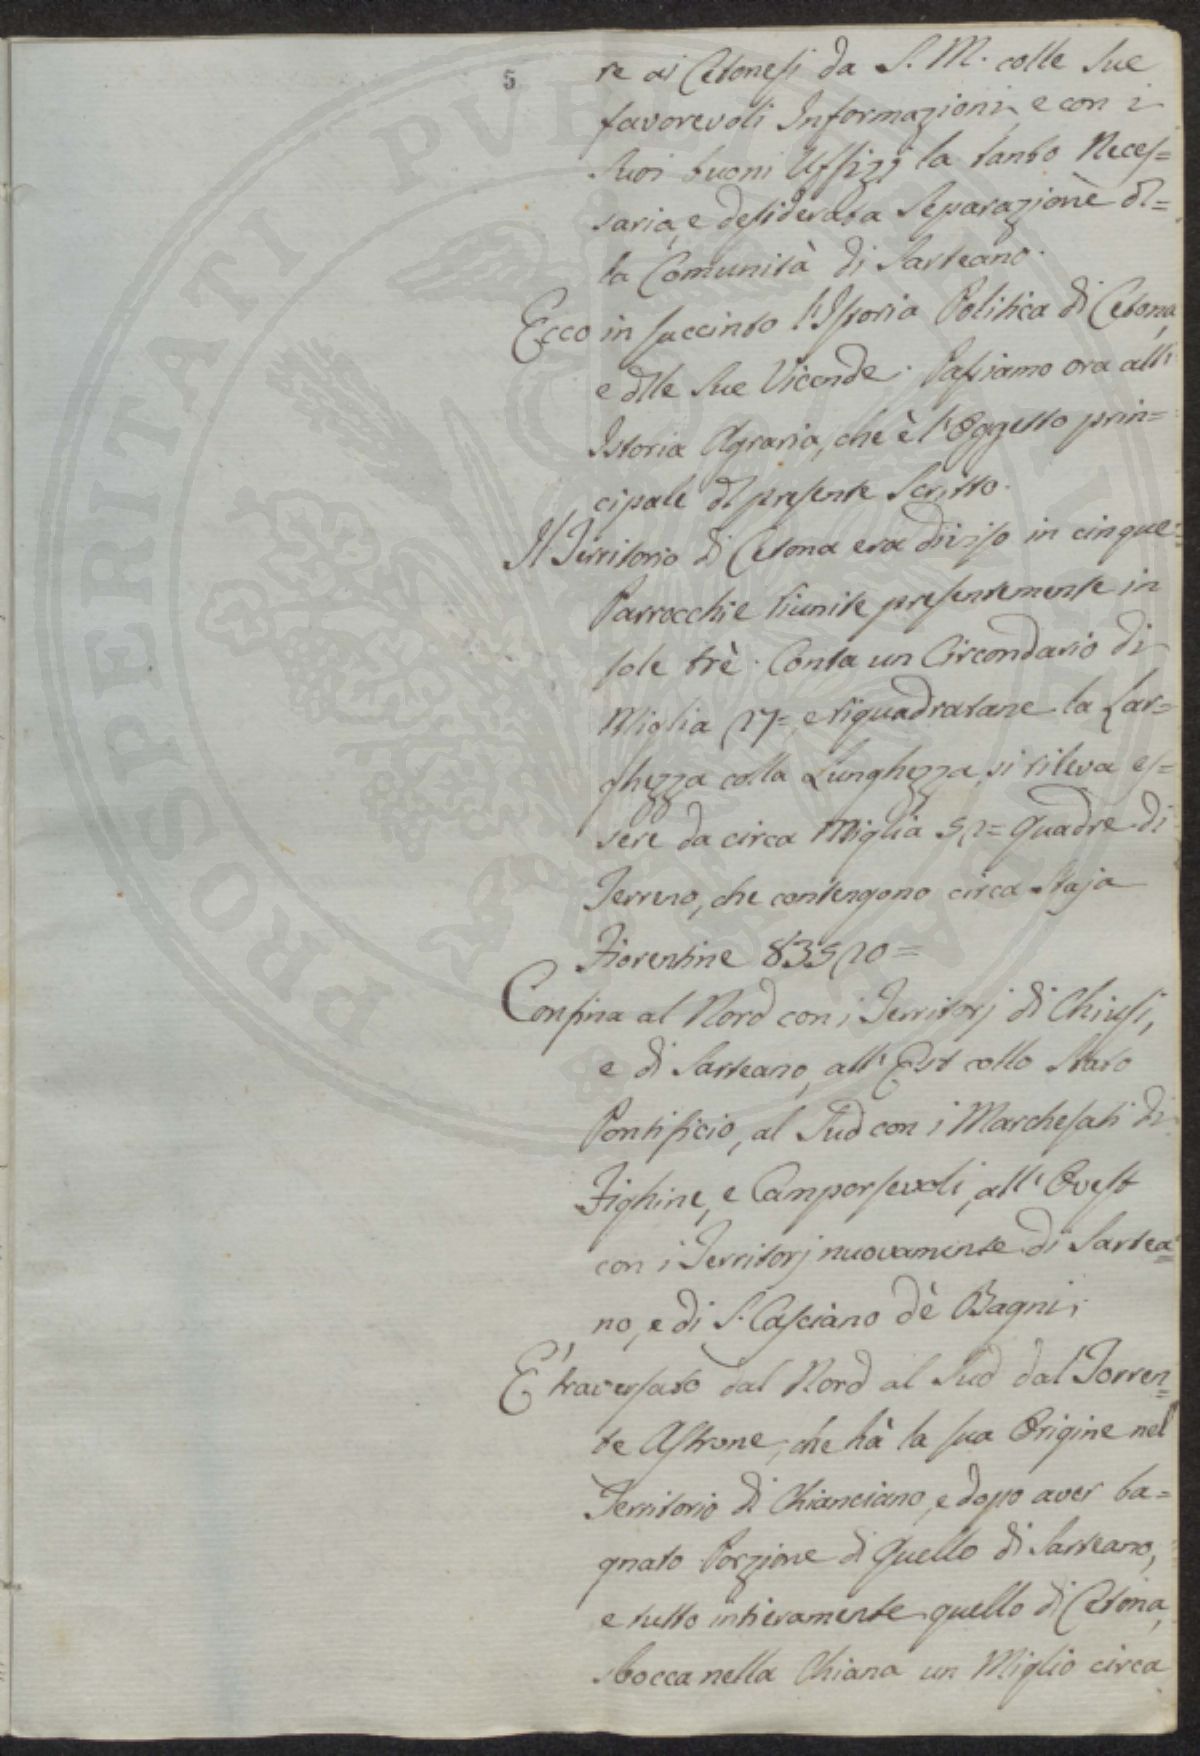 5
re ai Cetonesi da S. M. colle Sue
favorevoli Informazioni, e con i
Suoi buoni Uffizj la tanto Neces=
saria, e desiderata Separazione dl=
la Comunità di Sarteano.
Ecco in succinto l'Istoria Politica di Cetona,
e dlle Sue Vicende. Passiamo ora all'
Istoria Agraria, che è l'Oggetto prin=
cipale dl presente Scritto.
Il Territorio di Cetona era diviso in cinque
Parrocchie riunite presentemente in
sole trè. Conta un Circondario di
Miglia e riquadratane la Lar=
ghezza colla Lunghezza, si rileva es=
sere da circa Miglia quadre di
Terreno, che contengono circa Staja
Fiorentine
Confina al Nord con i Territorj di Chiusi,
e di Sarteano, all'Est collo Stato
Pontificio, al Sud con i Marchesati di
Fighine, e Camporsevoli, all'Ovest
con i Territorj nuovamente di Sartea=
no, e di S. Casciano dè Bagni;
E' traversato dal Nord al Sud dal Torren=
te Astrone, che hà la sua Origine nel
Territorio di Chianciano, e dopo aver ba=
gnato Porzione di Quello di Sarteano,
e tutto intieramente quello di Cetona,
sbocca nella Chiana un Miglio circa
PROSPERITATI